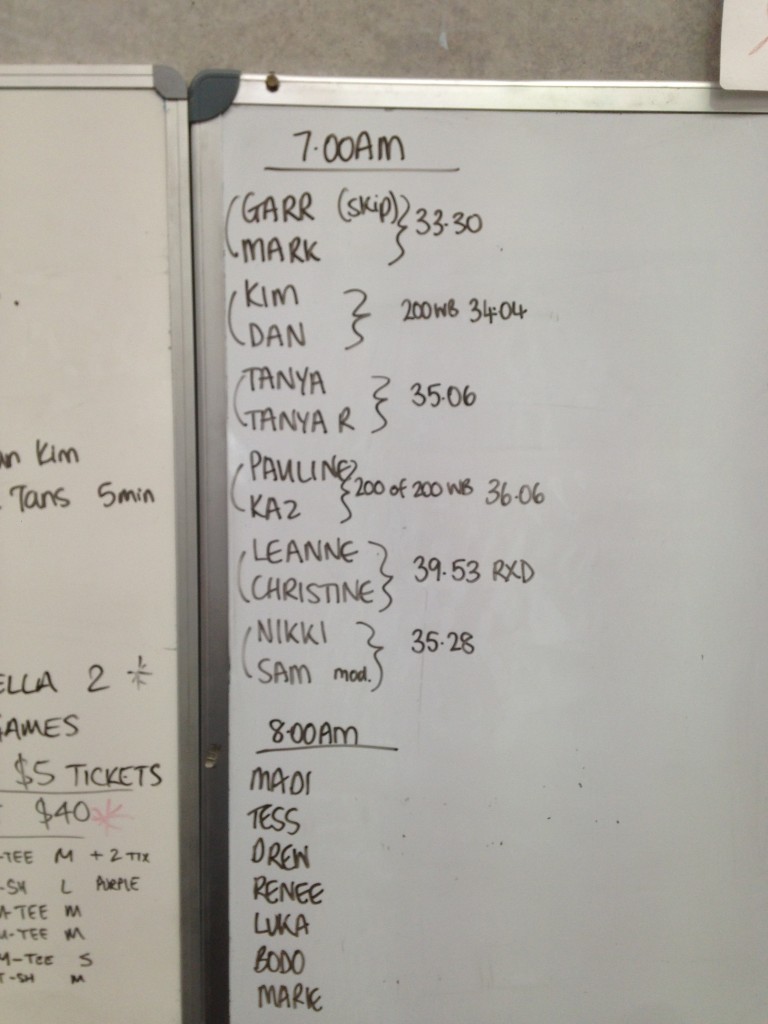 7.00AM
GARR (SKIP) 33.30
MARK
KIM
200 WB 34.04
DAN
TANYA
35.06
TANYA R
PAULINE
200 of 200 WB 36.06
KAZ
LEANNE
39.53 RXD
CHRISTINE
NIKKI
35.28
SAM mod.
8.00AM
MADI
TESS
DREW
RENEE
LUKA
BODO
MARIE
Kim
Tans 5min
ELLA 2 *
AMES
$5 TICKETS
$40 *
-TEE M + 2 TIX
-SH L PURPLE
-TEE M
-TEE M
M-TEE S
T-SH M